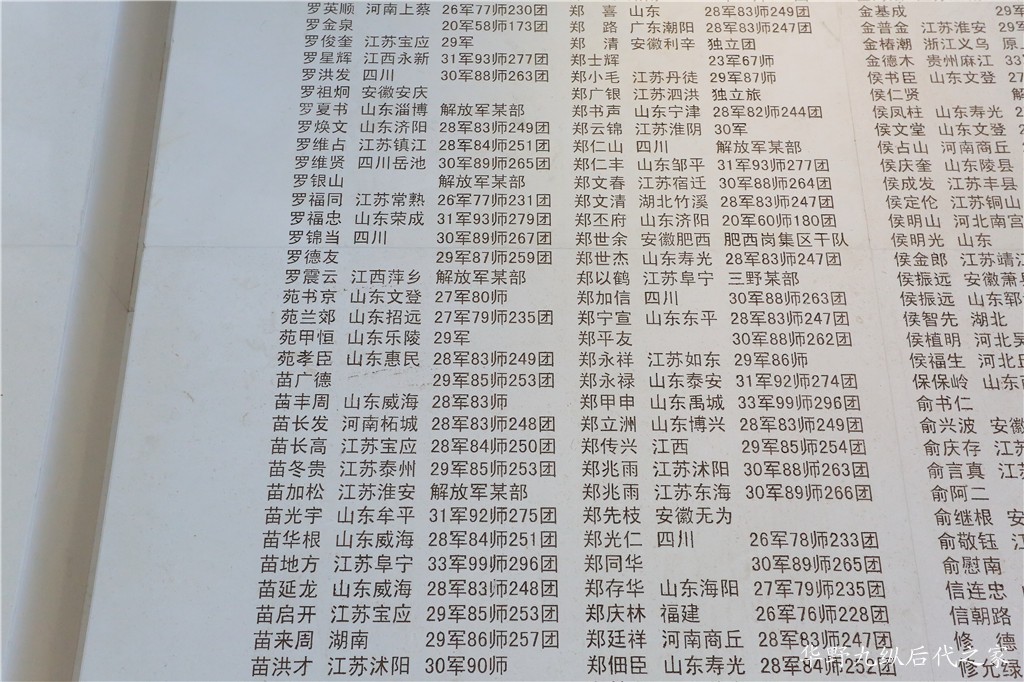 罗英顺 河南上蔡 26军77师230团
罗金泉 20军58师173团
罗俊奎 江苏宝应 29军
罗星辉 江西永新 31军93师277团
罗洪发 四川 30军88师263团
罗祖炯 安徽安庆
罗夏书 山东淄博 解放军某部
罗焕文 山东济阳 28军83师249团
罗维占 江苏镇江 28军84师251团
罗维贤 四川岳池 30军89师265团
罗银山 解放军某部
罗福同 江苏常熟 26军77师231团
罗福忠 山东荣成 31军93师279团
罗锦当 四川 30军89师267团
罗德友 29军87师259团
罗震云 江西萍乡 解放军某部
苑书京 山东文登 27军80师
苑兰郊 山东招远 27军79师235团
苑甲恒 山东乐陵 29军
苑孝臣 山东惠民 28军83师249团
苗广德 29军85师253团
苗丰周 山东威海 28军83师
苗长发 河南柘城 28军83师248团
苗长高 江苏宝应 28军84师250团
苗冬贵 江苏泰州 29军85师253团
苗加松 江苏淮安 解放军某部
苗光宇 山东牟平 31军92师275团
苗华根 山东威海 28军84师251团
苗地方 江苏阜宁 33军99师296团
苗延龙 山东威海 28军83师248团
苗启开 江苏宝应 29军85师253团
苗来周 湖南 29军86师257团
苗洪才 江苏沭阳 30军90师
郑 喜 山东 28军83师249团
郑 路 广东潮阳 28军83师247团
郑 清 安徽利辛 独立团
郑士辉 23军67师
郑小毛 江苏丹徒 29军87师
郑广银 江苏泗洪 独立旅
郑书声 山东宁津 28军82师244团
郑云锦 江苏淮阴 30军
郑仁山 四川 解放军某部
郑仁丰 山东邹平 31军93师277团
郑文春 江苏宿迁 30军88师264团
郑文清 湖北竹溪 28军83师247团
郑丕府 山东济阳 20军60师180团
郑世余 安徽肥西 肥西岗集区干队
郑世杰 山东寿光 28军83师247团
郑以鹤 江苏阜宁 三野某部
郑加信 四川 30军88师263团
郑宁宣 山东东平 28军83师247团
郑平友 30军88师262团
郑永祥 江苏如东 29军86师
郑永禄 山东泰安 31军92师274团
郑甲申 山东禹城 33军99师296团
郑立洲 山东博兴 28军83师249团
郑传兴 江西 29军85师254团
郑兆雨 江苏沭阳 30军88师263团
郑兆雨 江苏东海 30军89师266团
郑先枝 安徽无为
郑光仁 四川 26军78师233团
郑同华 30军89师265团
郑存华 山东海阳 27军79师235团
郑庆林 福建 26军76师228团
郑廷祥 河南商丘 28军83师247团
郑佃臣 山东寿光 28军84师252团
金基成 29军
金普金 江苏淮安 29军
金椿潮 浙江义乌 原
金德木 贵州麻江 33
侯书臣 山东文登 27
侯仁贤 解
侯凤柱 山东寿光 2
侯文堂 山东文登
侯占山 河南商丘
侯庆奎 山东陵县
侯成发 江苏丰县
侯定伦 江苏铜山
侯明山 河北南宫
侯明光 山东
侯金郎 江苏靖江
侯振远 安徽萧
侯振远 山东
侯智先 湖北
侯植明 河北
侯福生 河北
保保岭 山东
俞书仁
俞兴波 安徽
俞庆存 江苏
俞言真 江苏
俞阿二
俞继根 安
俞敬钰 江
俞慰南
信连忠
信朝路
修 德
修允绿
华野九纵后代之家